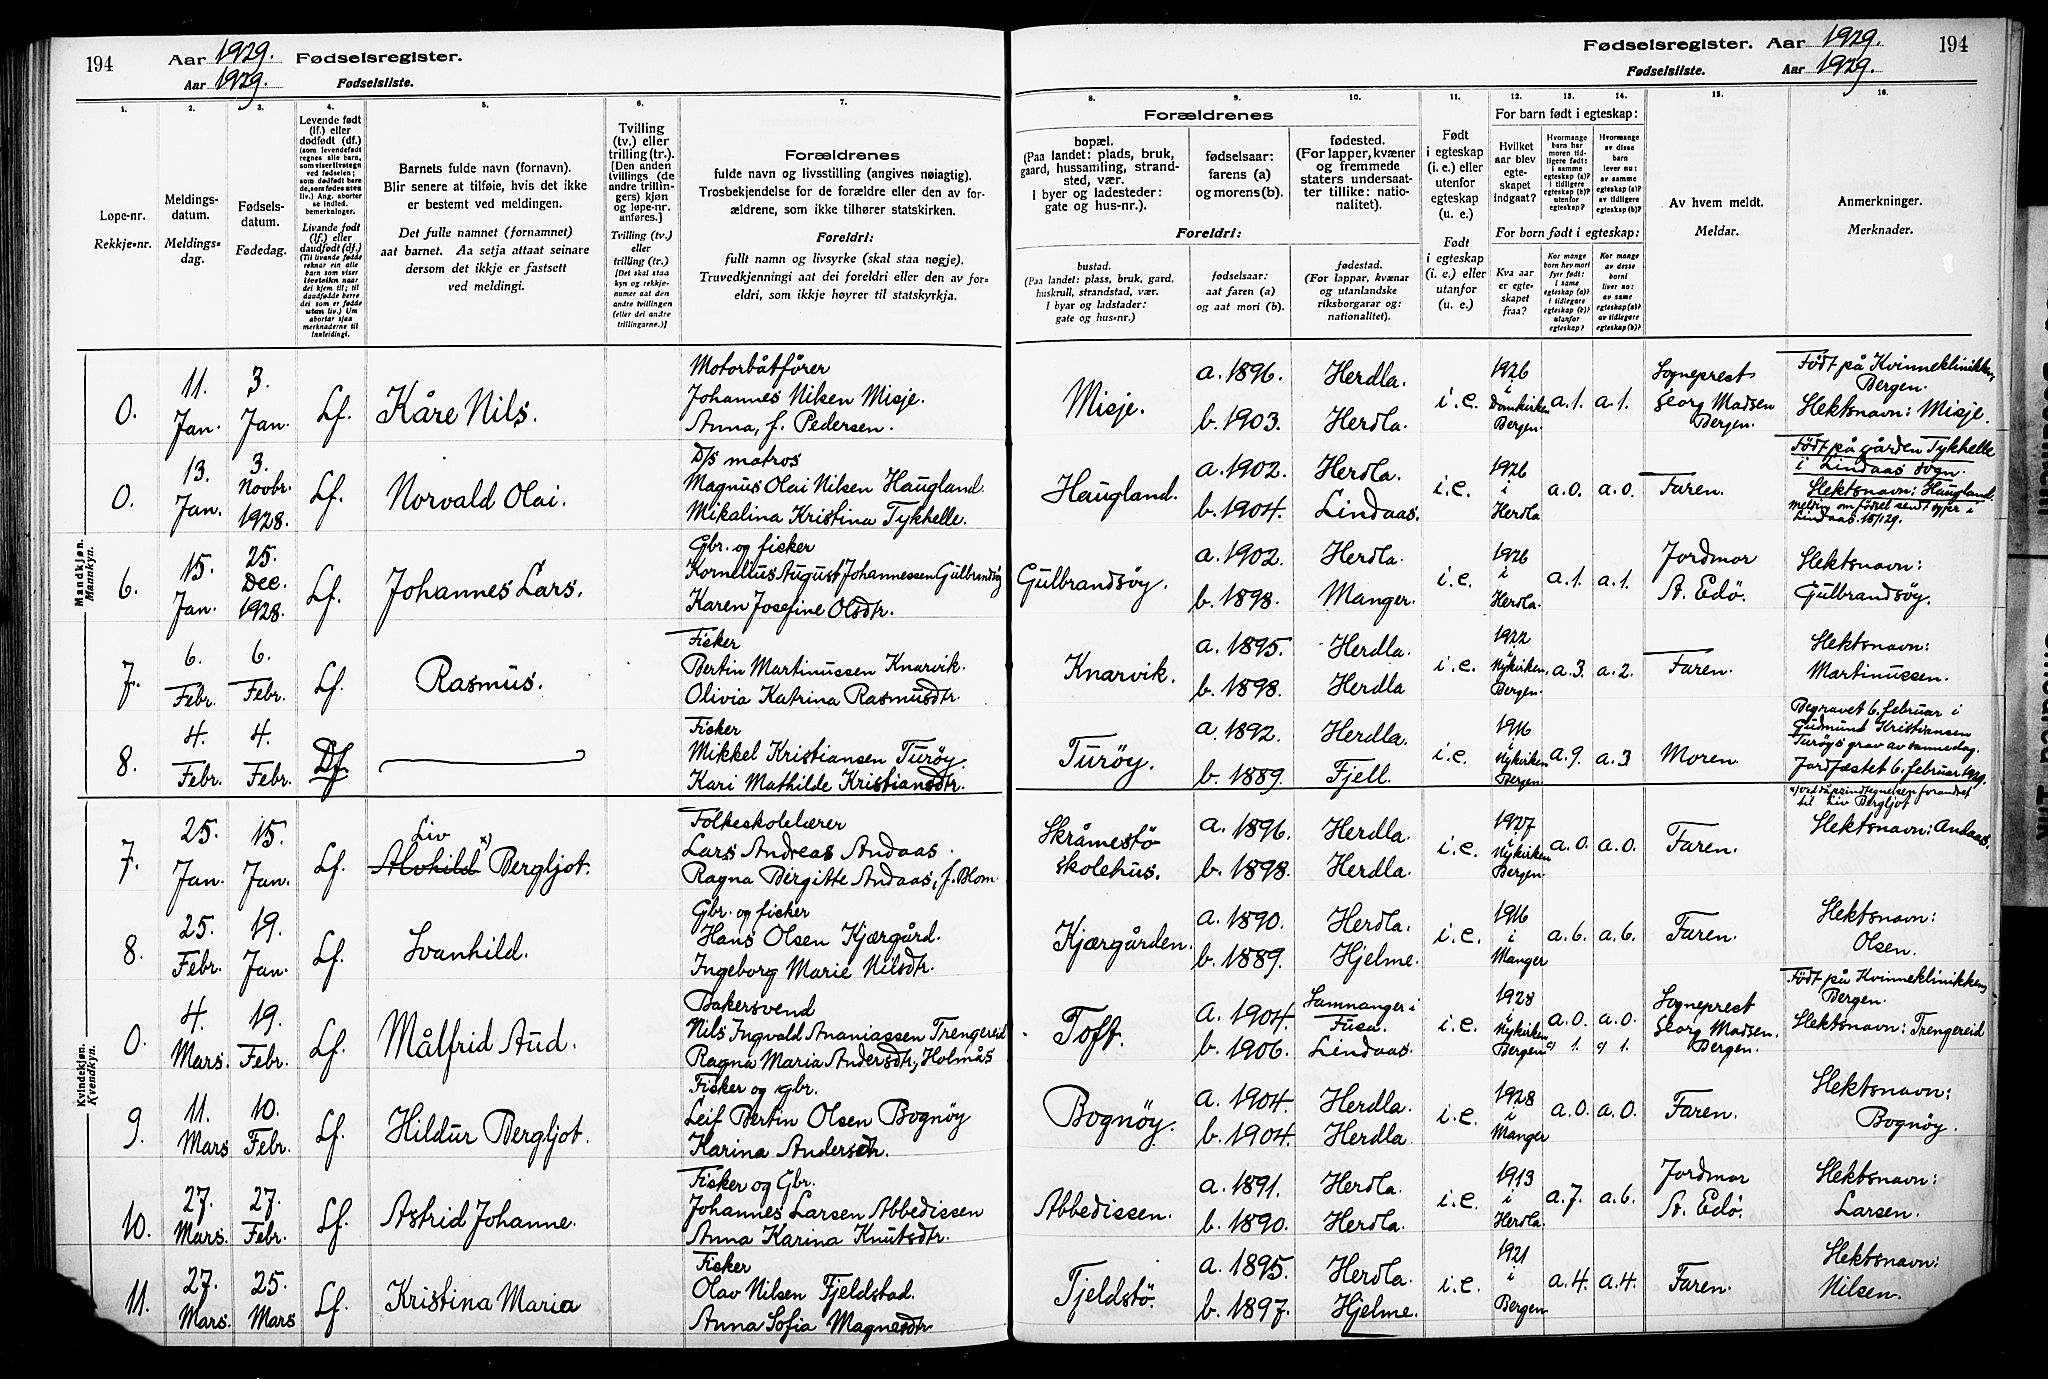 194
Aar 1929. Fødselsregister.
Aar 1929. Fødselsliste.
Fødselsregister. Aar 1929.
194
Fødselsliste. Aar 1929.
1. 2. 3. 4. 5. 6. 7. 8. 9. 10. 11. 12. 13. 14. 15. 16.
Løpe-nr.
Rekkje-nr.
Meldings-
datum.
Meldings-
dag.
Fødsels-
datum.
Fødedag.
Levende født
(lf.) eller
dødfødt (df.)
(som levendefødt
regnes alle barn,
som viser livstegn
ved fødselen;
som dødfødt bare
de, som fødes uten
liv.) Ang. aborter
se indled.
bemerkninger.
Livande født
(lf.) eller
daudfødt (df.)
(Til livande fødde
reknar ein alle
barn som viser
livsteikn naar
dei kjem til; til
daudfødde berre
dei som er fødde
utan liv.) Um
abortar sjaa
merknaderne til
innleidingi.
Barnets fulde navn (fornavn).
Blir senere at tilføie, hvis det ikke
er bestemt ved meldingen.
Det fulle namnet (fornamnet)
aat barnet. Aa setja attaat seinare
dersom det ikkje er fastsett
ved meldingi.
Tvilling
(tv.) eller
trilling (tr.).
[Den anden
tvillings (de
andre trillin-
gers) kjøn
og løpe-nr.
anføres.]
Tvilling (tv.)
eller
trilling (tr.)
[Det skal staa
kyn og rekkje-
numer aat den
andre tvillingen
(eller dei andre
trillingarne.)]
Forældrenes
fulde navn og livsstilling (angives nøiagtig).
Trosbekjendelse for de forældre eller den av for-
ældrene, som ikke tilhører statskirken.
Foreldri:
fullt namn og livsyrke (skal staa nøgje).
Truvedkjenningi aat dei foreldri eller den av for-
eldri, som ikkje høyrer til statskyrkja.
Forældrenes
bopæl.
(Paa landet: plads, bruk,
gaard, hussamling, strand-
sted, vær.
I byer og ladesteder:
gate og hus-nr.).
fødselsaar:
farens (a)
og morens (b).
fødested.
(For lapper, kvæner
og fremmede
staters undersaat-
ter tillike: natio-
nalitet).
Foreldri:
bustad.
(Paa landet: plass, bruk, gard,
huskrull, strandstad, vær.
I byar og ladstader:
gate og hus-nr.)
fødselsaar:
aat faren (a)
og aat mori (b).
fødestad.
(For lappar, kvænar
og utanlandske
riksborgarar og:
nationalitet).
Født
i egteskap
(i. e.) eller
utenfor
egteskap
(u. e.)
Født
i egteskap
(i. e.) eller
utanfor
(u. e.)
For barn født i egteskap:
Hvilket
aar blev
egte-
skapet
indgaat?
Hvormange
barn har
moren tid-
ligere født:
i samme
egteskap (a)?
i tidligere
egteskap (b)?
utenfor
egteskap?
Hvormange
av disse
barn
lever nu:
av samme
egteskap (a)?
av tidligere
egteskap (b)?
For born født i egteskap:
Kva aar
er egte-
skapet
fraa?
Kor mange
born hev mori
fyrr født:
i same
egteskap (a)?
i tidlegare
egteskap (b)?
utanfor
egteskap?
Kor mange
av desse
borni
liver nu:
av same
egteskap (a)?
av tidlegare
egteskap (b)?
Av hvem meldt.
Meldar.
Anmerkninger.
Merknader.
Mandkjøn.
Mannkyn.
0. 11. Jan. 3. Jan. Lf. Kåre Nils.
Motorbåtfører
Johannes Nilsen Misje.
Anna, f. Pedersen.
Misje. a. 1896. Herdla. b. 1903. Herdla. i.e. 1926 i Domkirken Bergen. a.1. a.1.
Sogneprest
Georg Madsen
Bergen.
Født på Kvinneklinikken,
Bergen.
Slektsnavn: Misje.
0. 13. Jan. 3. Novbr. 1928. Lf. Norvald Olai.
D/s matros
Magnus Olai Nilsen Haugland.
Mikalina Kristina Tykhelle.
Haugland. a. 1902. Herdla. b. 1904. Lindaas. i.e. 1926 i Herdla a.0. a.0. Faren.
Født på gården Tykhelle
i Lindaas sogn.
Slektsnavn: Haugland.
Lindaas 15/1 29.
6. 15. Jan. 25. Dec. 1928. Lf. Johannes Lars.
Gbr. og fisker
Kornelius August Johannessen Gulbrandsøy
Karen Josefine Olsdtr.
Gulbrandsøy. a. 1902. Herdla. b. 1898. Manger. i.e. 1926 i Herdla. a.1. a.1.
Jordmor
A. Edø.
Slektsnavn:
Gulbrandsøy.
7. 6. Febr. 6. Febr. Lf. Rasmus.
Fisker
Bertin Martinussen Knarvik.
Olivia Katrina Rasmusdtr.
Knarvik. a. 1895. Herdla. b. 1898. Herdla i.e. 1922 i Nykirken, Bergen. a.3 a.2. Faren.
Slektsnavn:
Martinussen.
8. 4. Febr. 4. Febr. Df.
Fisker
Mikkel Kristiansen Turøy.
Kari Mathilde Kristiansdtr.
Turøy. a. 1892. Herdla. b. 1889. Fjell. i.e. 1916 i Nykirken Bergen. a.9. a.3 Moren.
Begravet 6. februar i
Gudmund Kristiansen
Turøys grav av samme dag.
Jordfæstet 6. februar 1929.
Kvindekjøn.
Kvendkyn.
7. 25. Jan. 15. Jan. Lf. Liv x)
Alvhild Bergljot.
Folkeskolelærer
Lars Andreas Andaas.
Ragna Birgitte Andaas, f. Blom
Skråmestø
skolehus. a. 1896. Herdla. b. 1898. Herdla. i.e. 1927 i Nykirken Bergen. a.0. a.0. Faren.
forandret
til Liv Bergljot
Slektsnavn: Andaas.
8. 25. Febr. 19. Jan. Lf. Svanhild.
Gbr. og fisker
Hans Olsen Kjærgård.
Ingeborg Marie Nilsdtr.
Kjærgården. a. 1890. Herdla. b. 1889. Hjelme. i.e. 1916 i Manger a.6. a.6. Faren.
Slektsnavn:
Olsen.
0. 4. Mars. 19. Febr. Lf. Målfrid Aud.
Bakersvend
Nils Ingvald Ananiassen Trengereid
Ragna Maria Andersdtr, Holmås
Toft. a. 1904. Samnanger i Fusa. b. 1906. Lindaas. i.e. 1928 i Nykirken Bergen a.0. a.0. c) 1. c) 1.
Sogneprest
Georg Madsen.
Bergen.
Født på Kvinneklinikken,
Bergen.
Slektsnavn: Trengereid
9. 11. Mars 10. Febr. Lf. Hildur Bergljot.
Fisker og gbr.
Leif Bertin Olsen Bognøy
Karina Andersdtr.
Bognøy. a. 1904. Herdla. b. 1904. Herdla. i.e. 1928 i Manger a.0. a.0. Faren.
Slektsnavn:
Bognøy.
10. 27. Mars. 27. Febr. Lf. Astrid Johanne.
Fisker og Gbr.
Johannes Larsen Abbedissen
Anna Karina Knutsdtr.
Abbedissen. a. 1891. Herdla. b. 1890. Herdla. i.e. 1913 i Herdla. a.7. a.6.
Jordmor
A. Edø.
Slektsnavn:
Larsen.
11. 27. Mars. 25. Mars Lf. Kristina Maria
Fisker
Olav Nilsen Fjeldstad.
Anna Sofia Magnesdtr.
Tjeldstø. a. 1895. Herdla. b. 1897. Hjelme. i.e. 1921 i Bergen a.4. a.4. Faren.
Slektsnavn:
Nilsen.